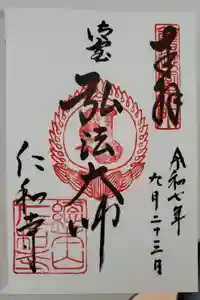 奉拝
令和七年
九月二十三日
弘法大師
仁和寺